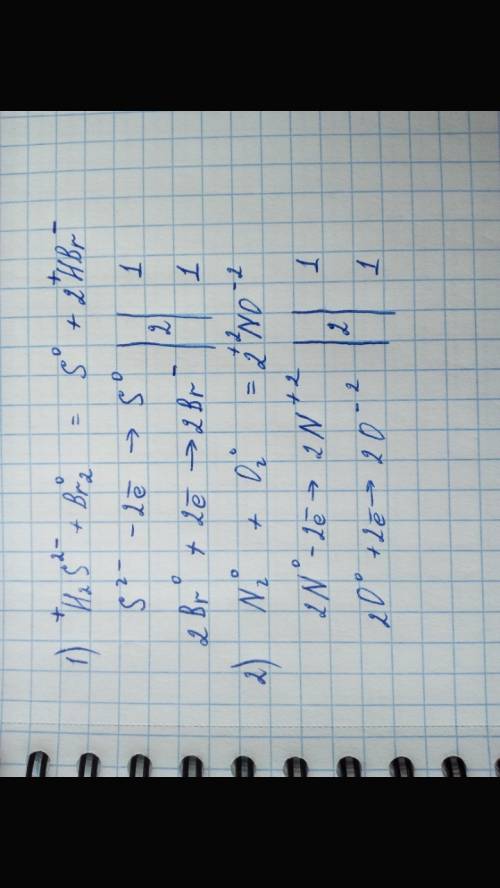 1) ⁺H₂S²⁻ + Br₂⁰ = S⁰ + 2⁺HBr⁻
S²⁻ - 2ē → S⁰ | 2 | 1
2Br⁰ + 2ē → 2Br⁻ | 1
2) N₂⁰ + O₂⁰ = 2⁺²NO⁻²
2N⁰ - 2ē → 2N⁺² | 2 | 1
2O⁰ + 2ē → 2O⁻² | 1